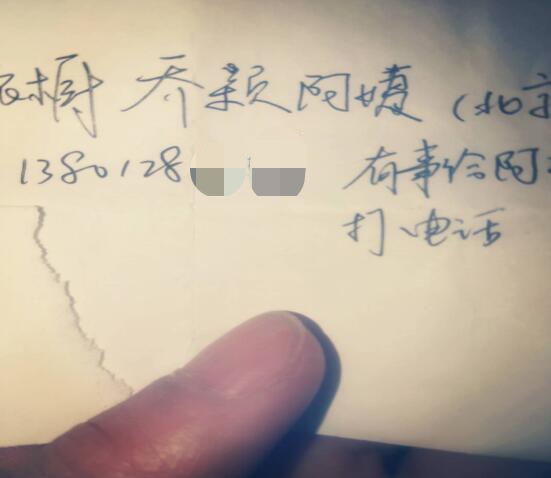 橱 乔颖阿姨（北京
1380128
有事给阿
打电话